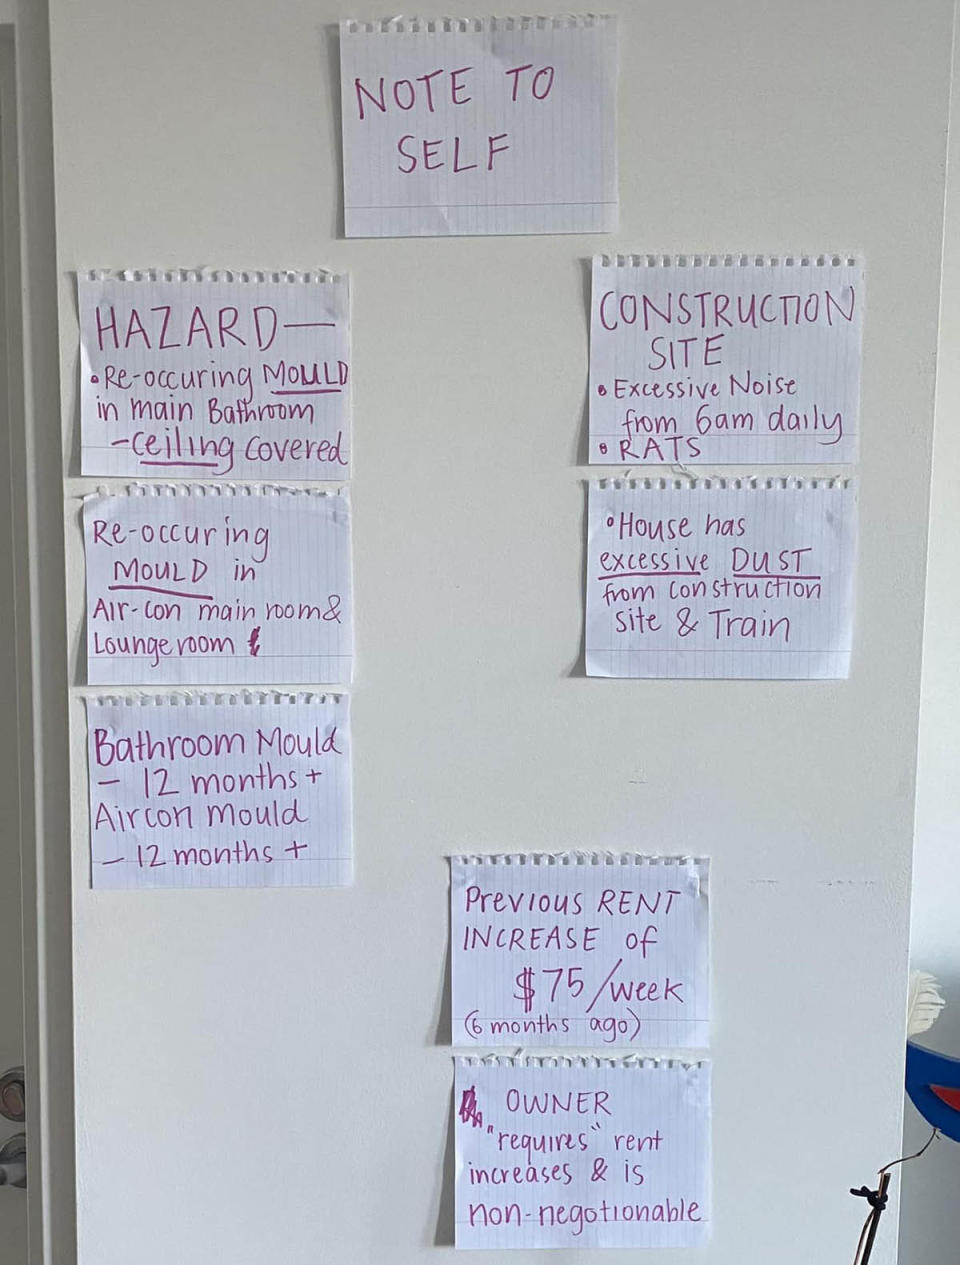 NOTE TO
SELF
HAZARD—
•Re-occuring MOULD
in main Bathroom
-ceiling covered
Re-occuring
MOULD in
Air-con main room&
Lounge room
Bathroom Mould
- 12 months +
Aircon mould
- 12 months +
CONSTRUCTION
SITE
• Excessive Noise
from 6am daily
• RATS
•House has
excessive DUST
from construction
site & Train
Previous RENT
INCREASE of
$75/week
(6 months ago)
OWNER
"requires" rent
increases & is
non-negotionable